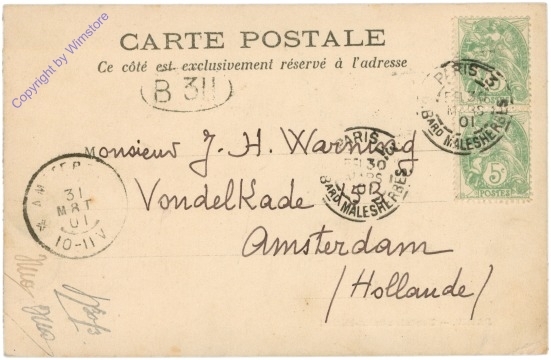 CARTE POSTALE
Ce côté est exclusivement réservé à l'adresse
B 311
Monsieur J. H. Warning
VondelKade
Amsterdam
(Hollande)
PARIS
30
MARS
01
BARD MALESHERBES
PARIS
30
MARS
01
BARD MALESHERBES
5c
POSTES
31
MRT
01
10-11V
Copyright by Wimstore